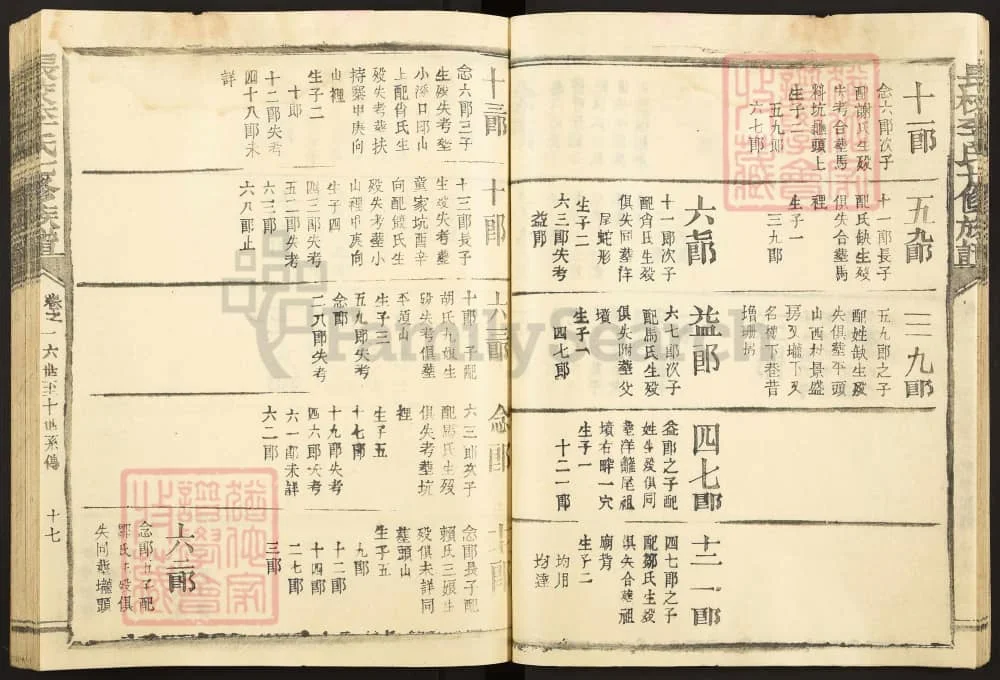 十一郎
念六郎次子
配謝氏生殁
失考合墓馬
料坑龜頭上
生子二
五九郎
六七郎
五九郎
十一郎長子
配氏缺生殁
俱失合墓馬
裡
生子一
三九郎
六七郎
十一郎次子
配肖氏生殁
俱失同墓洋
尾蛇形
生子二
六三郎失考
益郎
三九郎
五九郎之子
配姓缺生殁
失俱墓平頭
山西林景盛
房㕛壠下㕛
名樓下巷昔
益郎
六七郎次子
配馬氏生殁
俱失附墓父
墳
生子一
四七郎
四七郎
益郎之子配
姓生殁俱同
墓洋籬尾祖
墳右畔一穴
生子一
十二一郎
十二一郎
四七郎之子
配鄒氏生殁
俱失合墓祖
廟背
生子二
均用
均達
十三郎
念六郎三子
生殁失考墓
小溪口郎山
上配肖氏生
殁失考墓扶
持寨甲庚向
山裡
生子二
十郎
十二郎失考
四十八郎未
詳
十郎
十三郎長子
生殁失考墓
童家坑酉辛
向配饒氏生
殁失考墓小
山裡甲庚向
生子四
四三郎失考
五二郎失考
六三郎
六八郎止
六三郎
十郎子配
胡氏九娘生
殁失考俱墓
平頭山
生子三
五九郎失考
念郎
二八郎失考
念郎
六三郎次子
配馬氏生殁
俱失考墓坑
裡
生子五
十七郎
十九郎失考
四六郎失考
六一郎未詳
六二郎
十七郎
念郎長子配
賴氏三娘生
殁俱未詳同
墓頭山
生子五
九郎
十二郎
十四郎
二七郎
三郎
六二郎
念郎五子配
鄒氏生殁俱
失同墓壠頭
卷之一
六世至十世系傳
十七
FamilySearch